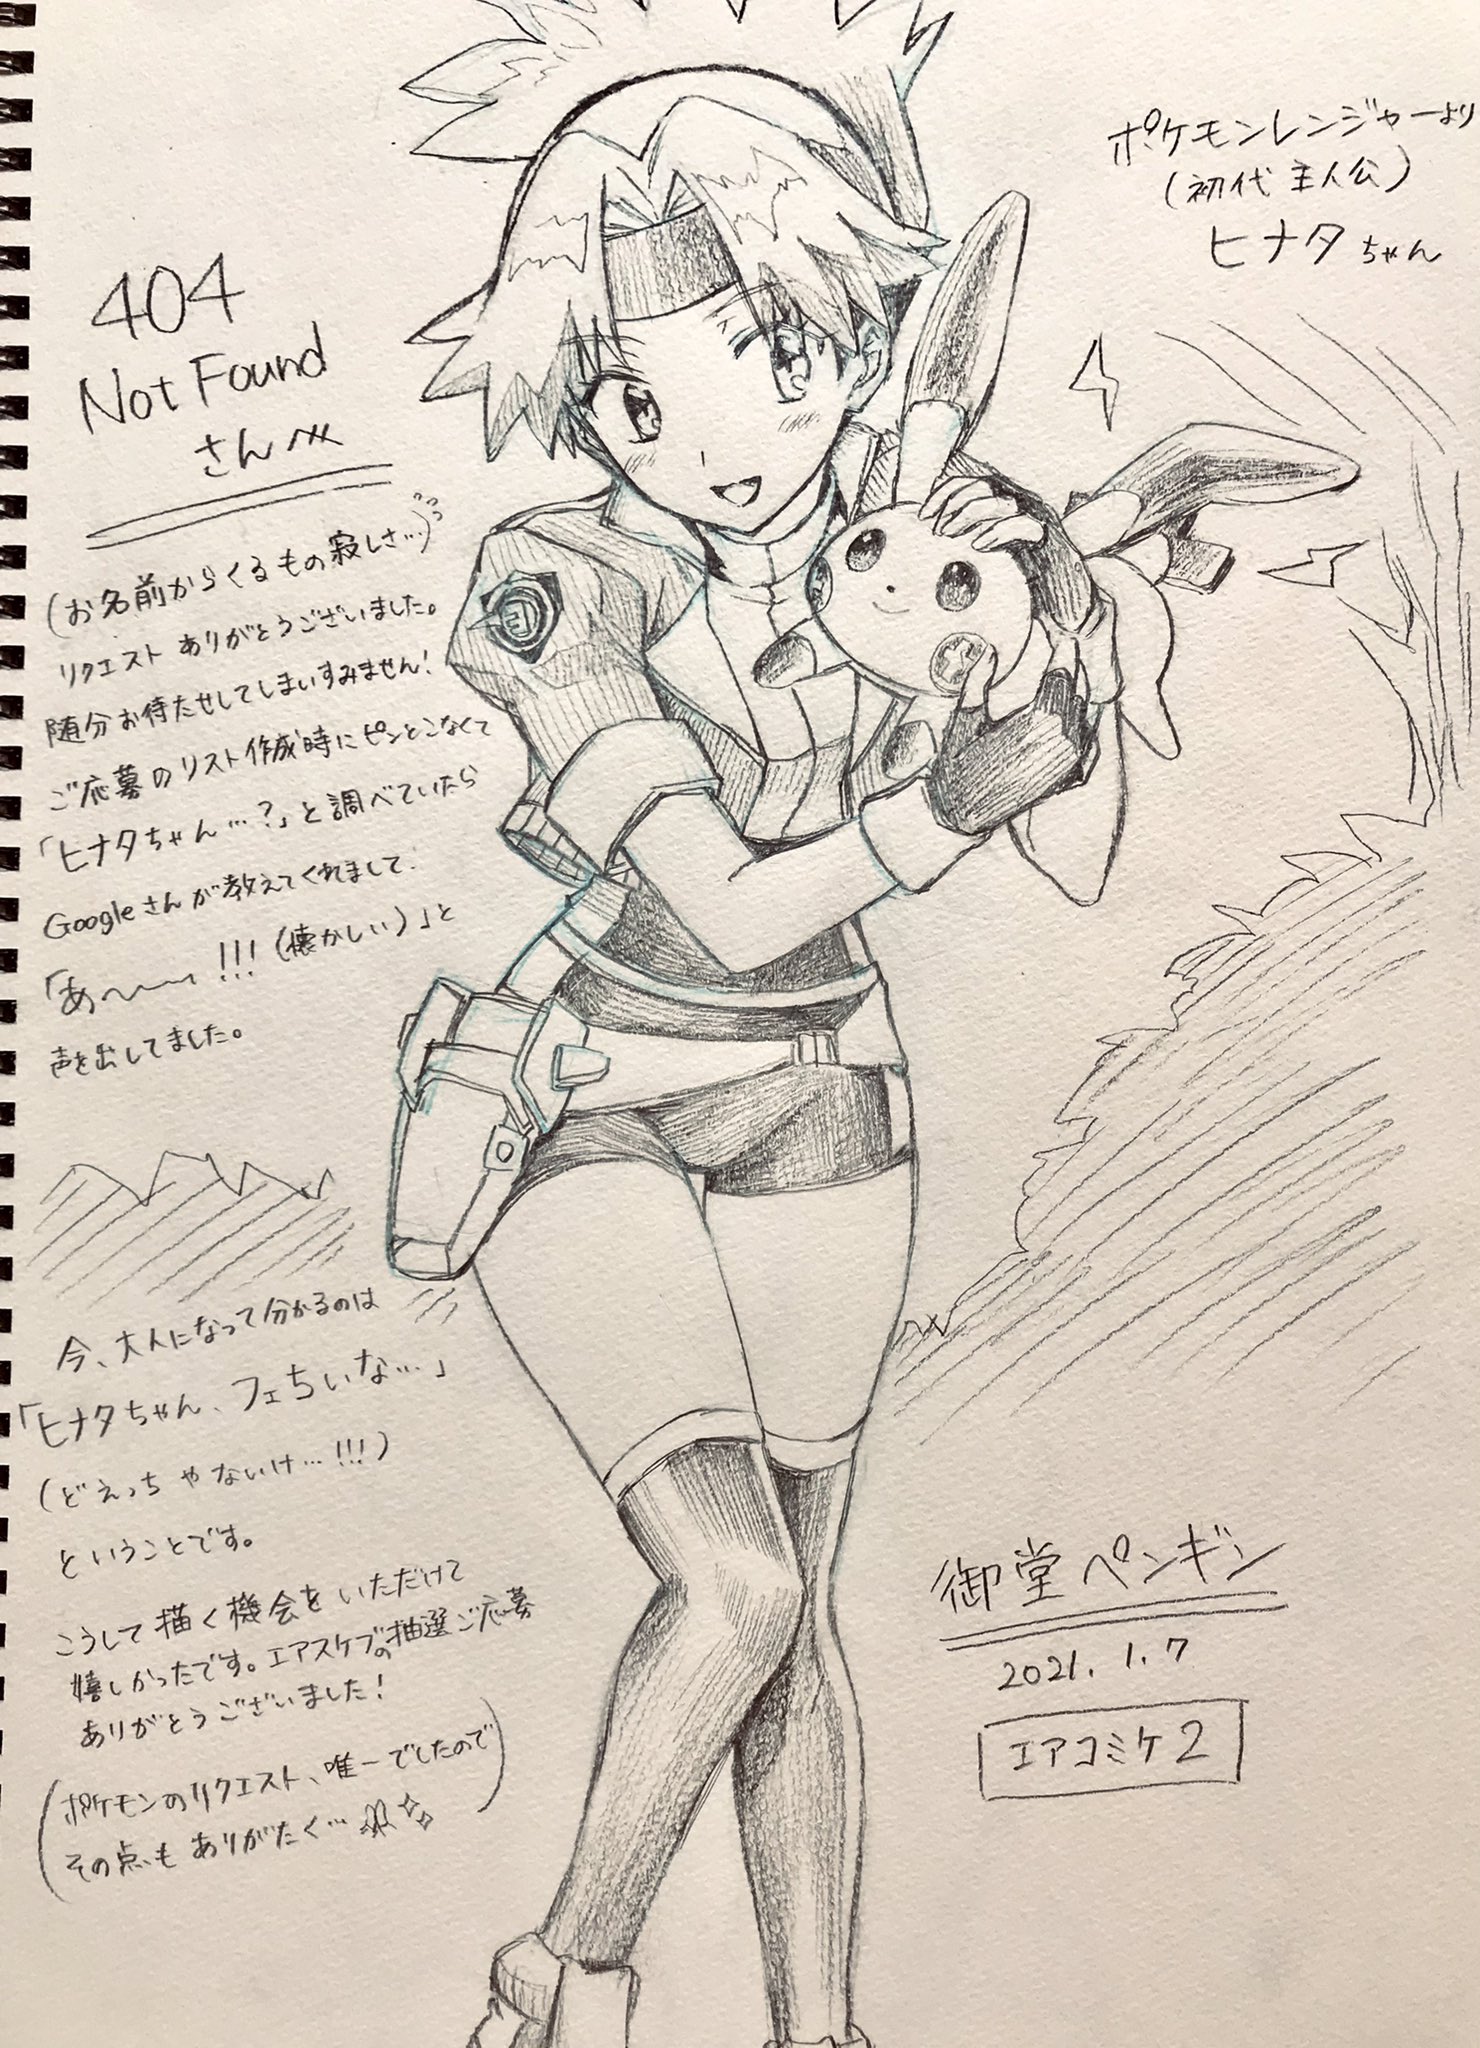 ポケモンレンジャーより
(初代 主人公)
ヒナタちゃん
404
Not Found
さんへ
(お名前からくるもの寂しさ…)
リクエスト ありがとうございました。
随分お待たせしてしまいすみません!
ご応募のリスト作成時にピンとこなくて
「ヒナタちゃん…?」と調べていたら
Googleさんが教えてくれまして
「あ~~~!!!(懐かしい)」と
声を出してました。
今、大人になって分かるのは
「ヒナタちゃん、フェちいな…」
(どえっちゃないけ…!!!)
ということです。
こうして描く機会をいただけて
嬉しかったです。エアスケブの抽選ご応募
ありがとうございました!
(ポケモンのリクエスト、唯一でしたので
その点もありがたく…)
御堂ペンギン
2021.1.7
エアコミケ2